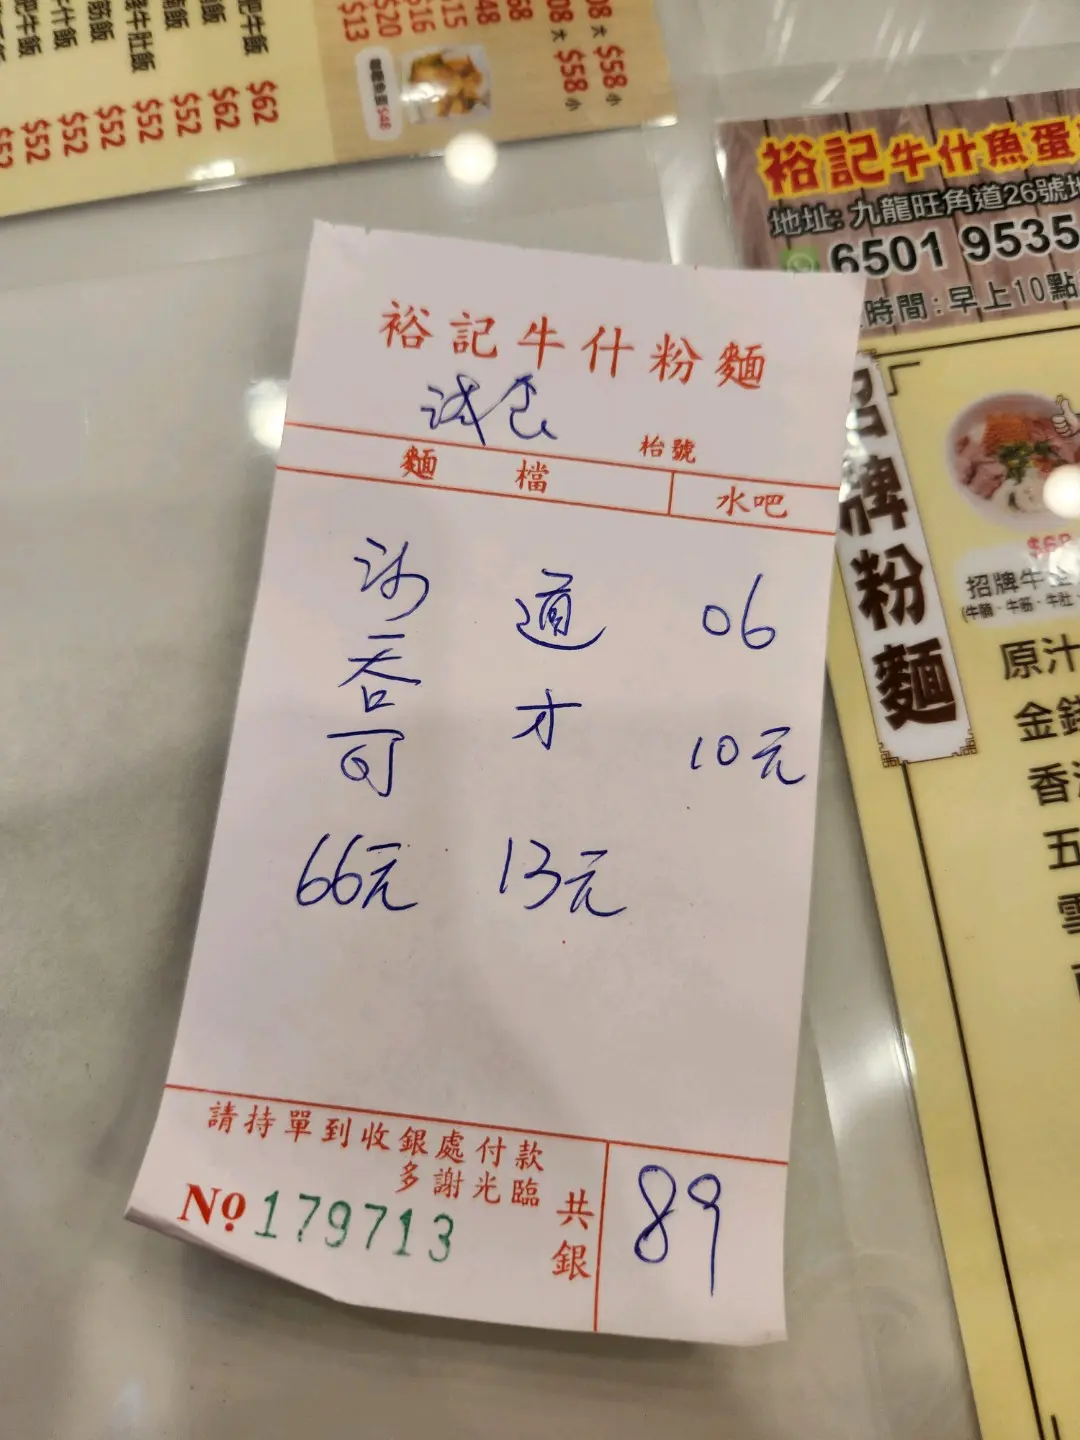 肥牛飯
$62
$62
$52
牛肚飯
$52
筋飯
$52
牛什飯
$52
牛飯
$52
$15
$16
$20
$13
$48
$58 小
$58 小
裕記牛什魚蛋
地址: 九龍旺角道26號地
6501 9535
時間:早上10點
裕記牛什粉麵
試食
枱號
麵 檔
水吧
沙 道 06
吞 才 10元
可
66元 13元
請持單到收銀處付款
多謝光臨
共銀
89
No 179713
招牌粉麵
$68
招牌牛
(牛腩、牛筋、牛肚、
原汁
金錢
香
五